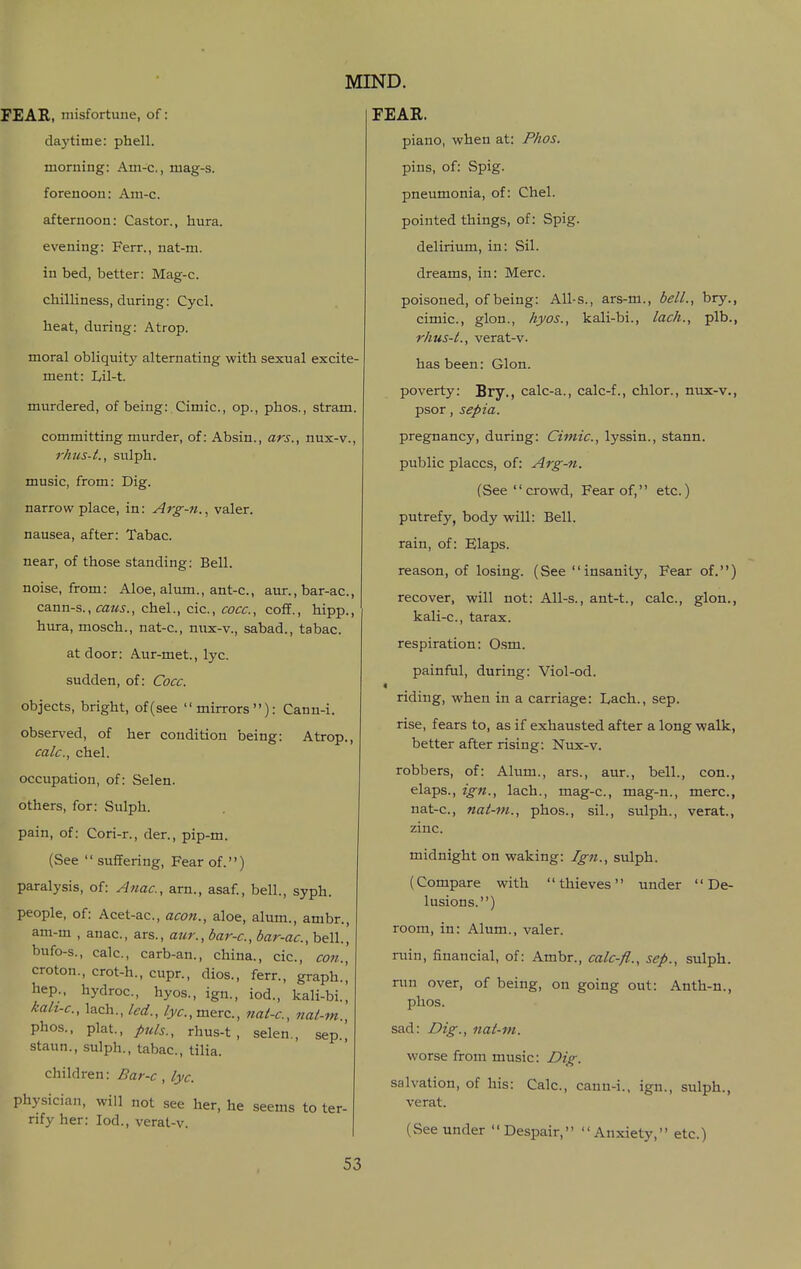 MIND.
FEAR, misfortune, of:
daytime: phell.
morning: Am-c., mag-s.
forenoon: Am-c.
afternoon: Castor., hura.
evening: Ferr., nat-m.
in bed, better: Mag-c.
chilliness, during: Cycl.
heat, during: Atrop.
moral obliquity alternating with sexual excite-
ment: Lil-t.
murdered, of being: Cimic., op., phos., stram.
committing murder, of: Absin., ars., nux-v.,
rhus-t., sulph.
music, from: Dig.
narrow place, in: Arg-n., valer.
nausea, after: Tabac.
near, of those standing: Bell.
noise, from: Aloe, alum., ant-c., aur., bar-ac.,
cann-s., caus., chel., cic., cocc., coff., hipp.,
hura, mosch., nat-c., nux-v., sabad., tabac.
at door: Aur-met., lyc.
sudden, of: Cocc.
objects, bright, of(see "mirrors"): Cann-i.
observed, of her condition being: Atrop.,
calc., chel.
occupation, of: Selen.
others, for: Sulph.
pain, of: Cori-r., der., pip-m.
(See "suffering, Fear of.")
paralysis, of: Anac., arn., asaf., bell., syph.
people, of: Acet-ac., acon., aloe, alum., ambr.,
am-m , anac., ars., aur., bar-c., bar-ac., bell.,
bufo-s., calc., carb-an., china., cic., con.,
croton., crot-h., cupr., dios., ferr., graph.,
hep., hydroc., hyos., ign., iod., kali-bi.,
kali-c., lach., led., lyc., merc., nat-c., nat-m.,
phos., plat., puls., rhus-t , selen., sep.,
stann., sulph., tabac., tilia.
children: Bar-c , lyc.
physician, will not see her, he seems to ter-
rify her: Iod., verat-v.
FEAR.
piano, when at: Phos.
pins, of: Spig.
pneumonia, of: Chel.
pointed things, of: Spig.
delirium, in: Sil.
dreams, in: Merc.
poisoned, of being: All-s., ars-m., bell., bry.,
cimic., glon., hyos., kali-bi., lach., plb.,
rhus-t., verat-v.
has been: Glon.
poverty: Bry., calc-a., calc-f., chlor., nux-v.,
psor , sepia.
pregnancy, during: Cimic., lyssin., stann.
public places, of: Arg-n.
(See "crowd, Fear of," etc.)
putrefy, body will: Bell.
rain, of: Elaps.
reason, of losing. (See "insanity, Fear of.")
recover, will not: All-s., ant-t., calc., glon.,
kali-c., tarax.
respiration: Osm.
painful, during: Viol-od.
riding, when in a carriage: Lach., sep.
rise, fears to, as if exhausted after a long walk,
better after rising: Nux-v.
robbers, of: Alum., ars., aur., bell., con.,
elaps., ign., lach., mag-c., mag-n., merc.,
nat-c., nat-m., phos., sil., sulph., verat.,
zinc.
midnight on waking: Ign., sulph.
(Compare with "thieves" under "De-
lusions.")
room, in: Alum., valer.
ruin, financial, of: Ambr., calc-fl., sep., sulph.
run over, of being, on going out: Anth-n.,
phos.
sad: Dig., nat-m.
worse from music: Dig.
salvation, of his: Calc., cann-i., ign., sulph.,
verat.
(See under "Despair," "Anxiety," etc.)
53